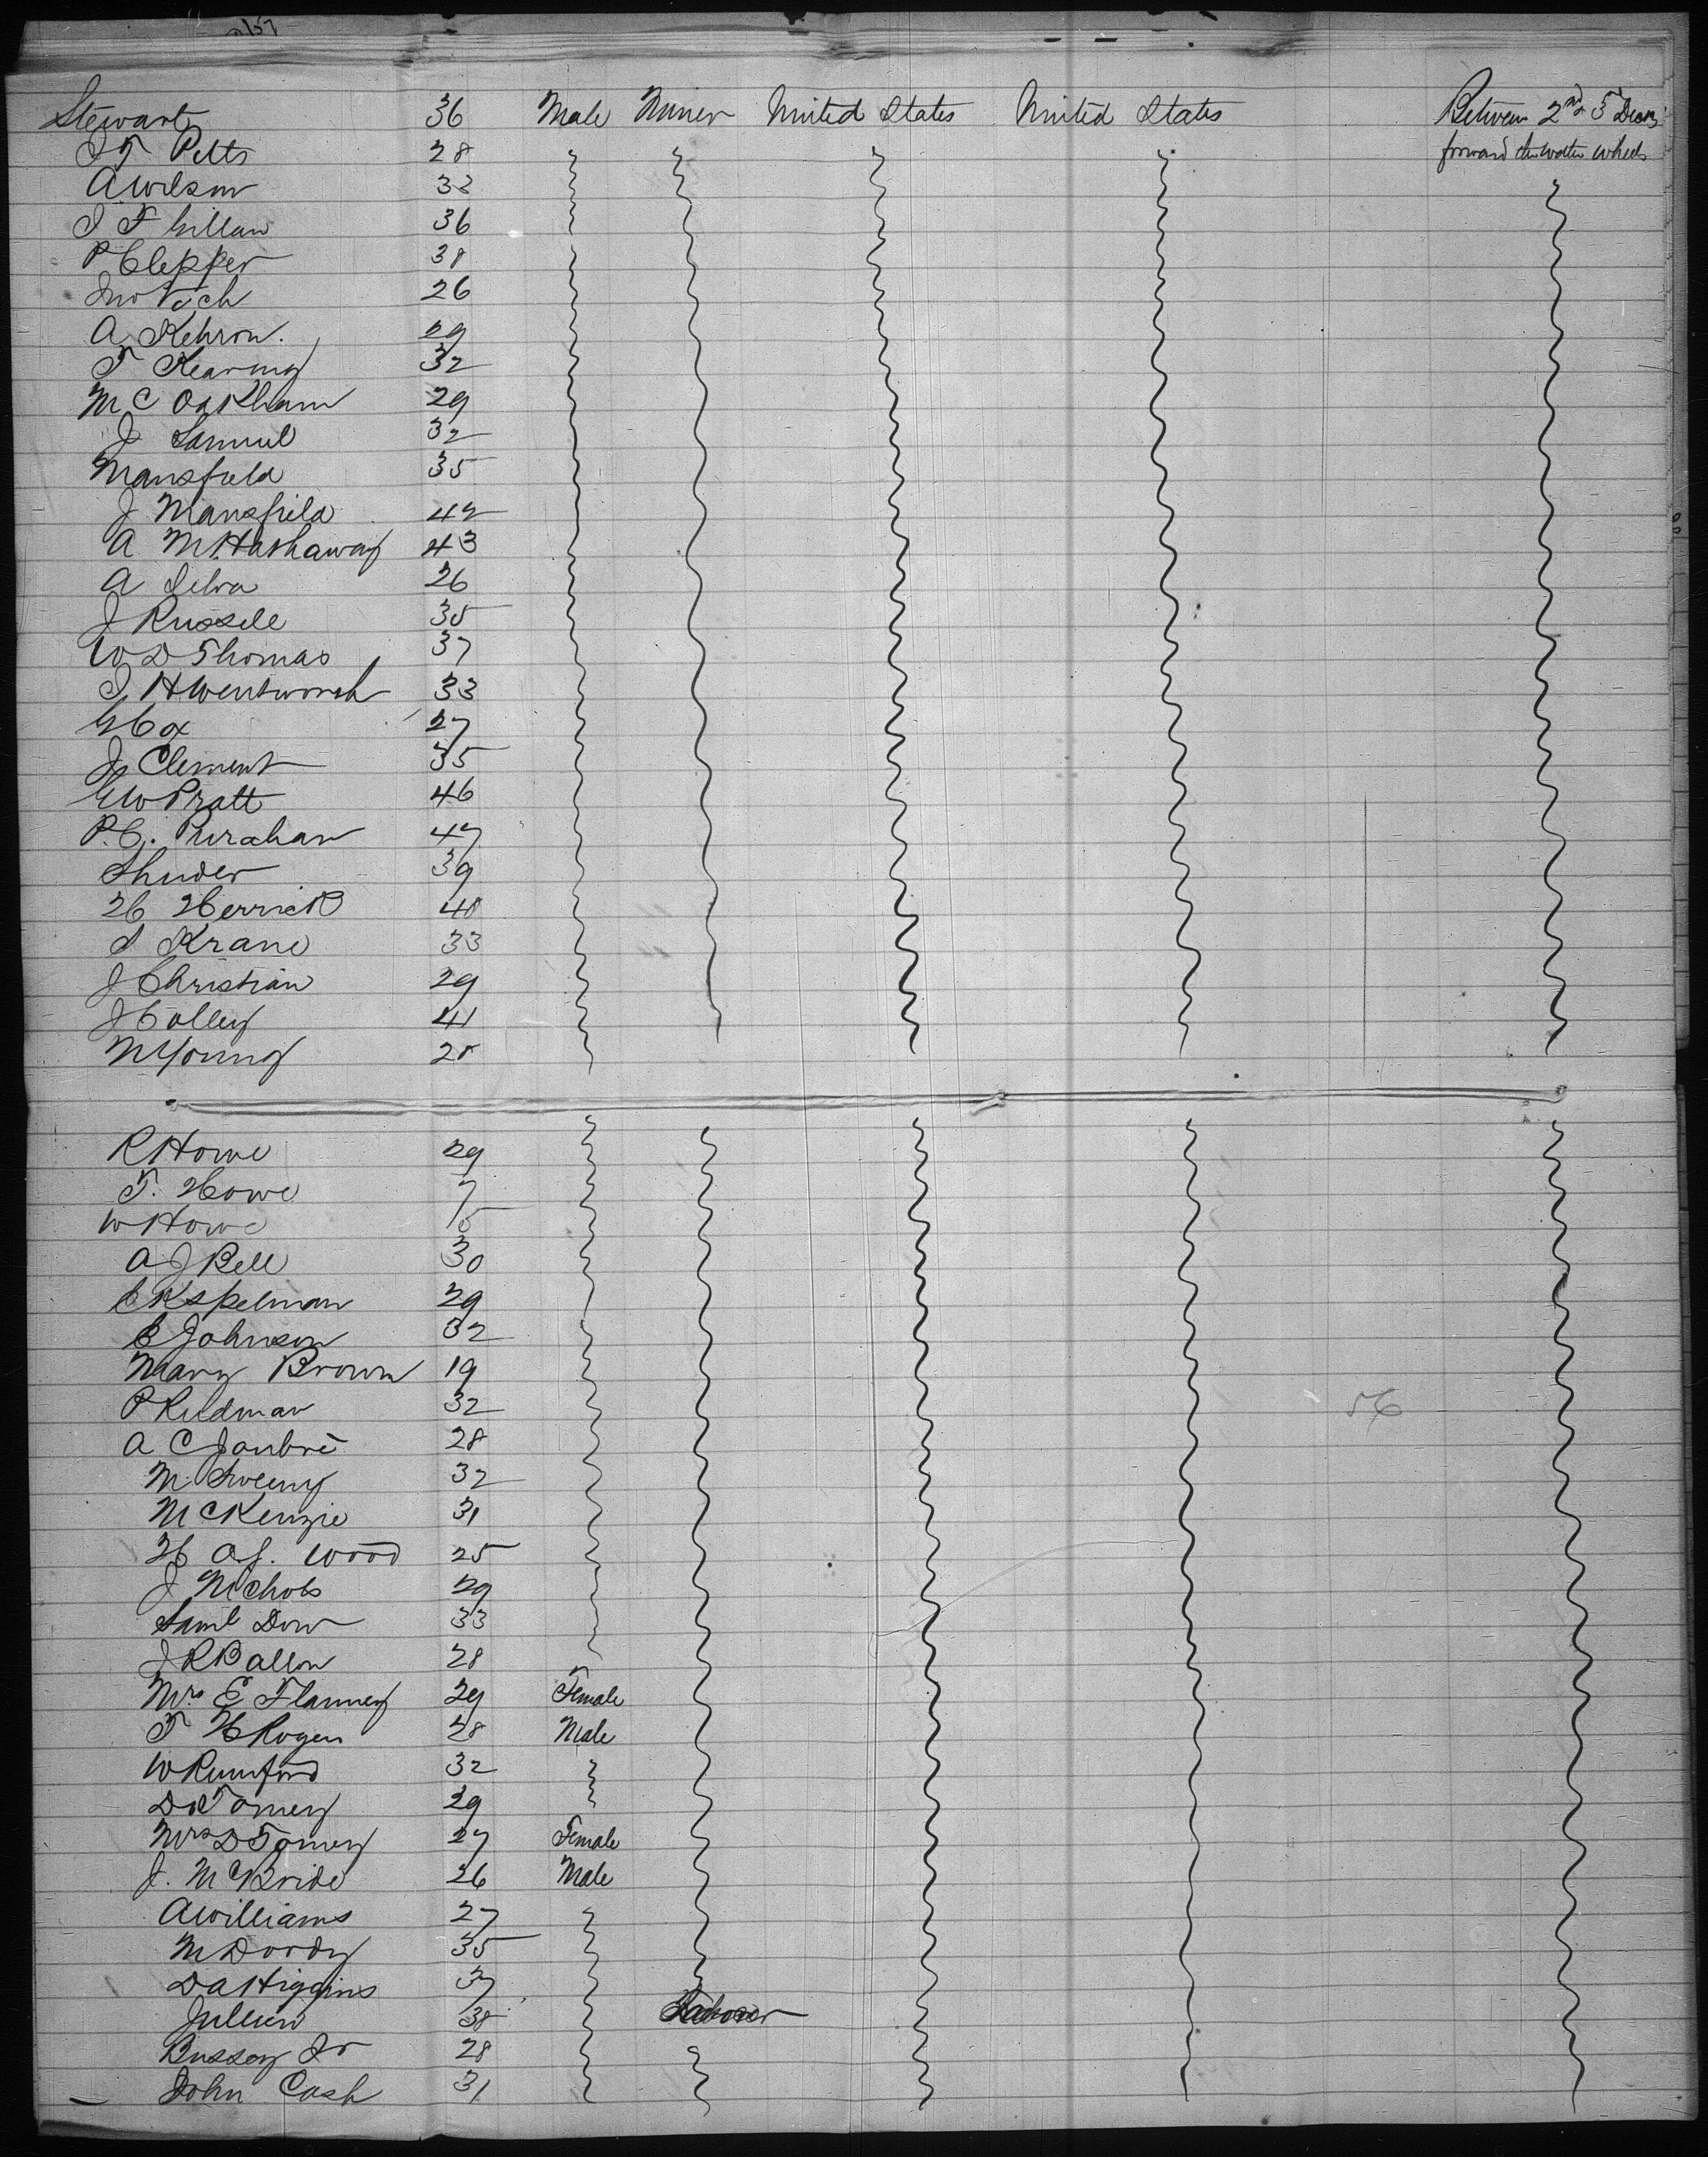 Stewart 36 Male Miner United States United States Between 2nd & 3 Decks
J T Petts 28 forward the water wheels
A Wilson 32
J F Gillan 36
P Clepper 38
Jno 26
A Kehron. 29
T Kearney 32
M C Oakham 29
J Samuel 32
Mansfield 35
J Mansfield 42
A M Hathaway 43
A Selva 26
J Russell 35
W D Thomas 37
J H Wentworth 33
G Cox 27
J Clement 35
G W Pratt 46
P. C. 47
Shuder 39
H Herrick 40
S Krane 33
J Christian 29
J Colley 41
N Young 28
R Howe 29
T. Howe 7
W Howe 5
A J Bell 30
C K Spelman 29
C Johnson 32
Mary Brown 19
P Rudman 32
A C Joubré 28
56
M Sweeny 32
McKenzie 31
H A J. Wood 25
J Nichols 29
Saml Dow 33
J R Ballou 28
Mrs E Flannery 29 Female
T H Rogers 28 Male
W Rumford 32
D Tomey 29
Mrs D Tomey 27 Female
J. McBride 26 Male
A Williams 27
M Doody 35
D A Higgins 37
Jullien 38 Laborer
Bussey Jr 28
John Cash 31